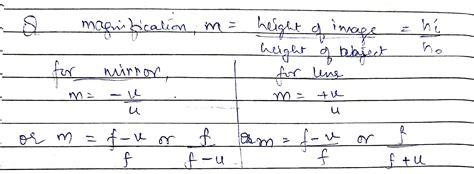 ⑧ magnification, m = height of image / height of object = hi / ho
for mirror, for lens
m = -v / u m = +v / u
or m = f-v / f or f / f-u or m = f-v / f or f / f+u